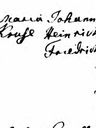 Maria Johann
Kruse Heinrich
Friedrich